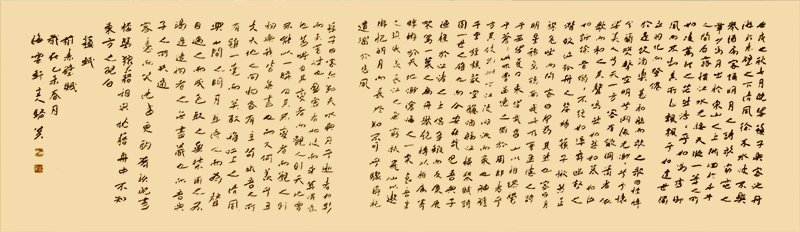 壬戌之秋七月既望蘇子與客泛舟
遊於赤壁之下清風徐來水波不興
舉酒屬客誦明月之詩歌窈窕之
章少焉月出於東山之上徘徊於斗牛
之間白露橫江水光接天縱一葦之所
如凌萬頃之茫然浩浩乎如馮虛御
風而不知其所止飄飄乎如遺世獨
立羽化而登僊
於是飲酒樂甚扣舷而歌之歌曰桂棹
兮蘭槳擊空明兮溯流光渺渺兮予懷
望美人兮天一方客有吹洞簫者倚
歌而和之其聲嗚嗚然如怨如慕如泣
如訴餘音嫋嫋不絕如縷舞幽壑之
潛蛟泣孤舟之嫠婦蘇子愀然正
襟危坐而問客曰何為其然也客曰月
明星稀烏鵲南飛此非曹孟德之詩
乎西望夏口東望武昌山川相繆鬱
乎蒼蒼此非孟德之困於周郎者乎
方其破荊州下江陵順流而東也舳艫
千里旌旗蔽空釃酒臨江橫槊賦詩
固一世之雄也而今安在哉況吾與子
漁樵於江渚之上侶魚蝦而友麋鹿
駕一葉之扁舟舉匏樽以相屬寄
蜉蝣於天地渺滄海之一粟哀吾生
之須臾羨長江之無窮挾飛仙以遨
遊抱明月而長終知不可乎驟得託
遺響於悲風
蘇子曰客亦知夫水與月乎逝者如斯
而未嘗往也盈虛者如彼而卒莫消長
也蓋將自其變者而觀之則天地曾
不能以一瞬自其不變者而觀之則
物與我皆無盡也而又何羨乎且
夫天地之間物各有主苟非吾之所
有雖一毫而莫取惟江上之清風
與山間之明月耳得之而為聲
目遇之而成色取之無禁用之不
竭是造物者之無盡藏也而吾與
子之所共適
客喜而笑洗盞更酌肴核既盡
杯盤狼藉相與枕藉舟中不知
東方之既白
蘇軾
前赤壁賦
歲在乙未春月
海棠軒主人